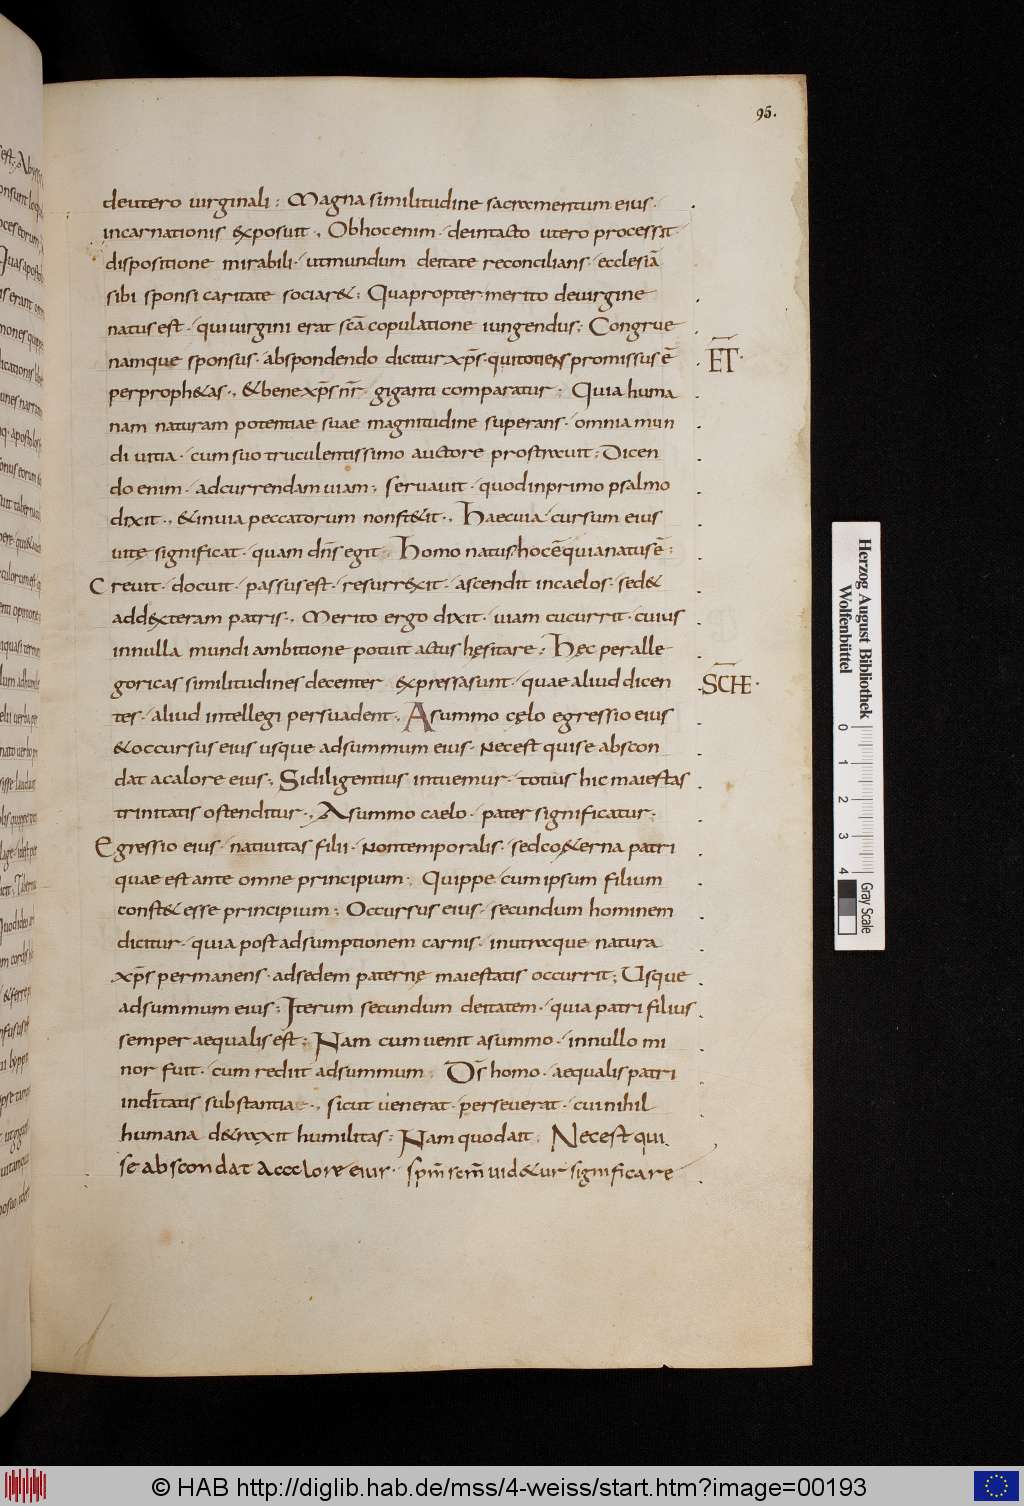 95.
deutero uirginali; Magna similitudine sacramentum eius·
incarnationis exposuit·, Ob hoc enim· de intacto utero processit·
dispositione mirabili· ut mundum deitate reconcilians· ecclesiā
sibi sponsi caritate sociar&; Quapropter merito de uirgine
natus est· qui uirgini erat scā copulatione iungendus; Congrue
namque sponsus· ab spondendo dicitur xp̄s· qui totiens promissus ē
per proph&as·, & bene xp̄s nr̄· giganti comparatur; Quia huma
nam naturam potentiae suae magnitudine superans· omnia mun
di uitia· cum suo truculentissimo auctore prostrauit; Dicen
do enim· ad currendam uiam; seruauit· quod in primo psalmo
dixit·, & in uia peccatorum non st&it·, Haec uia· cursum eius
uitę significat· quam dn̄s egit; Homo natus hoc ē quia natus ē;
Creuit· docuit· passus est· resurrexit· ascendit in caelos· sed&
ad dexteram patris·, Merito ergo dixit· uiam cucurrit· cuius
in nulla mundi ambitione potuit actus hęsitare; Hęc per alle
goricas similitudines decenter expressa sunt· quae aliud dicen
tes· aliud intellegi persuadent·, A summo cęlo egressio eius
& occursus eius usque ad summum eius· Nec est qui se abscon
dat a calore eius·; Si diligentius intuemur· totius hic maiestas
trinitatis ostenditur·, A summo caelo· pater significatur;
Egressio eius· natiuitas filii· Non temporalis· sed co&erna patri
quae est ante omne principium; Quippe cum ipsum filium
const& esse principium; Occursus eius· secundum hominem
dicitur· quia post adsumptionem carnis· in utraque natura
xp̄s permanens· ad sedem paternę maiestatis occurrit; Usque
ad summum eius; Iterum secundum deitatem· quia patri filius
semper aequalis est; Nam cum uenit a summo· in nullo mi
nor fuit· cum rediit ad summum; Ds̄ homo· aequalis patri
in dītatis substantia·, sicut uenerat· perseuerat· cui nihil
humana d&raxit humilitas; Nam quod ait; Nec est qui
se abscondat a calore eius· sp̄m sc̄m uid&ur significare
ĒT·
SCHE·
Herzog August Bibliothek
Wolfenbüttel
0 1 2 3 4
Gray Scale
© HAB http://diglib.hab.de/mss/4-weiss/start.htm?image=00193